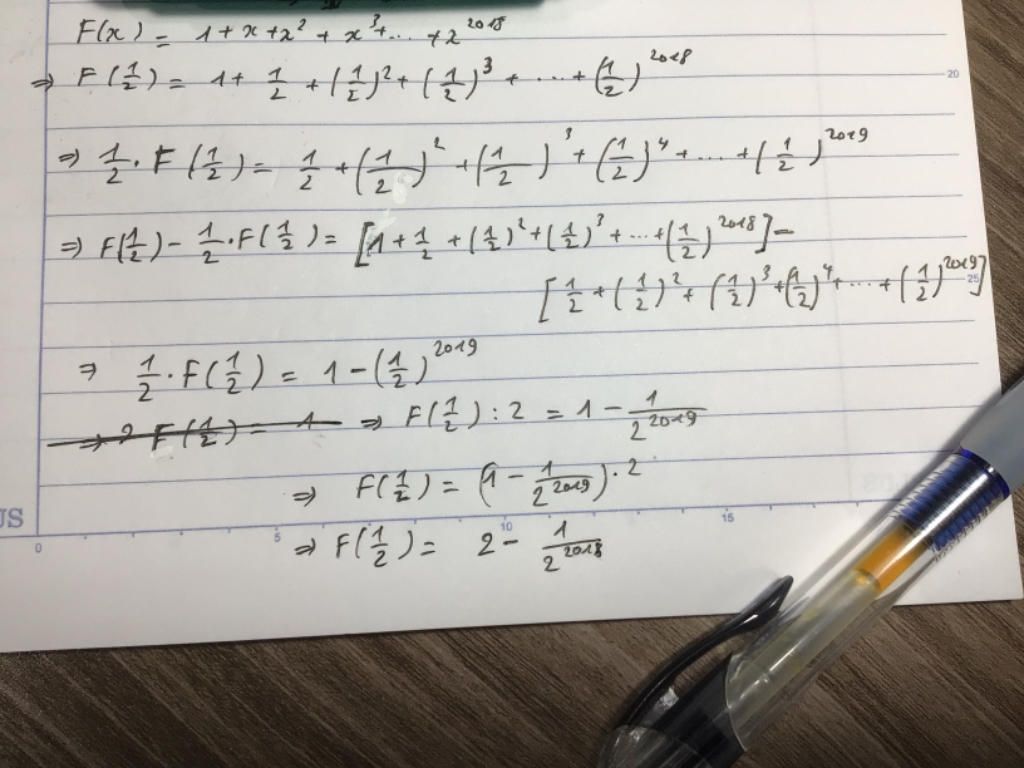 F(x) = 1 + x + x² + x³ + ... + 2²⁰¹⁸
⇒ F(1/2) = 1 + 1/2 + (1/2)² + (1/2)³ + ... + (1/2)²⁰¹⁸
20
⇒ 1/2 · F(1/2) = 1/2 + (1/2)² + (1/2)³ + (1/2)⁴ + ... + (1/2)²⁰¹⁹
⇒ F(1/2) - 1/2 · F(1/2) = [1 + 1/2 + (1/2)² + (1/2)³ + ... + (1/2)²⁰¹⁸] -
[1/2 + (1/2)² + (1/2)³ + (1/2)⁴ + ... + (1/2)²⁰¹⁹]
25
⇒ 1/2 · F(1/2) = 1 - (1/2)²⁰¹⁹
⇒ F(1/2) : 2 = 1 - 1/2²⁰¹⁹
⇒ F(1/2) = (1 - 1/2²⁰¹⁹) · 2
US
0 5 10 15
⇒ F(1/2) = 2 - 1/2²⁰¹⁸